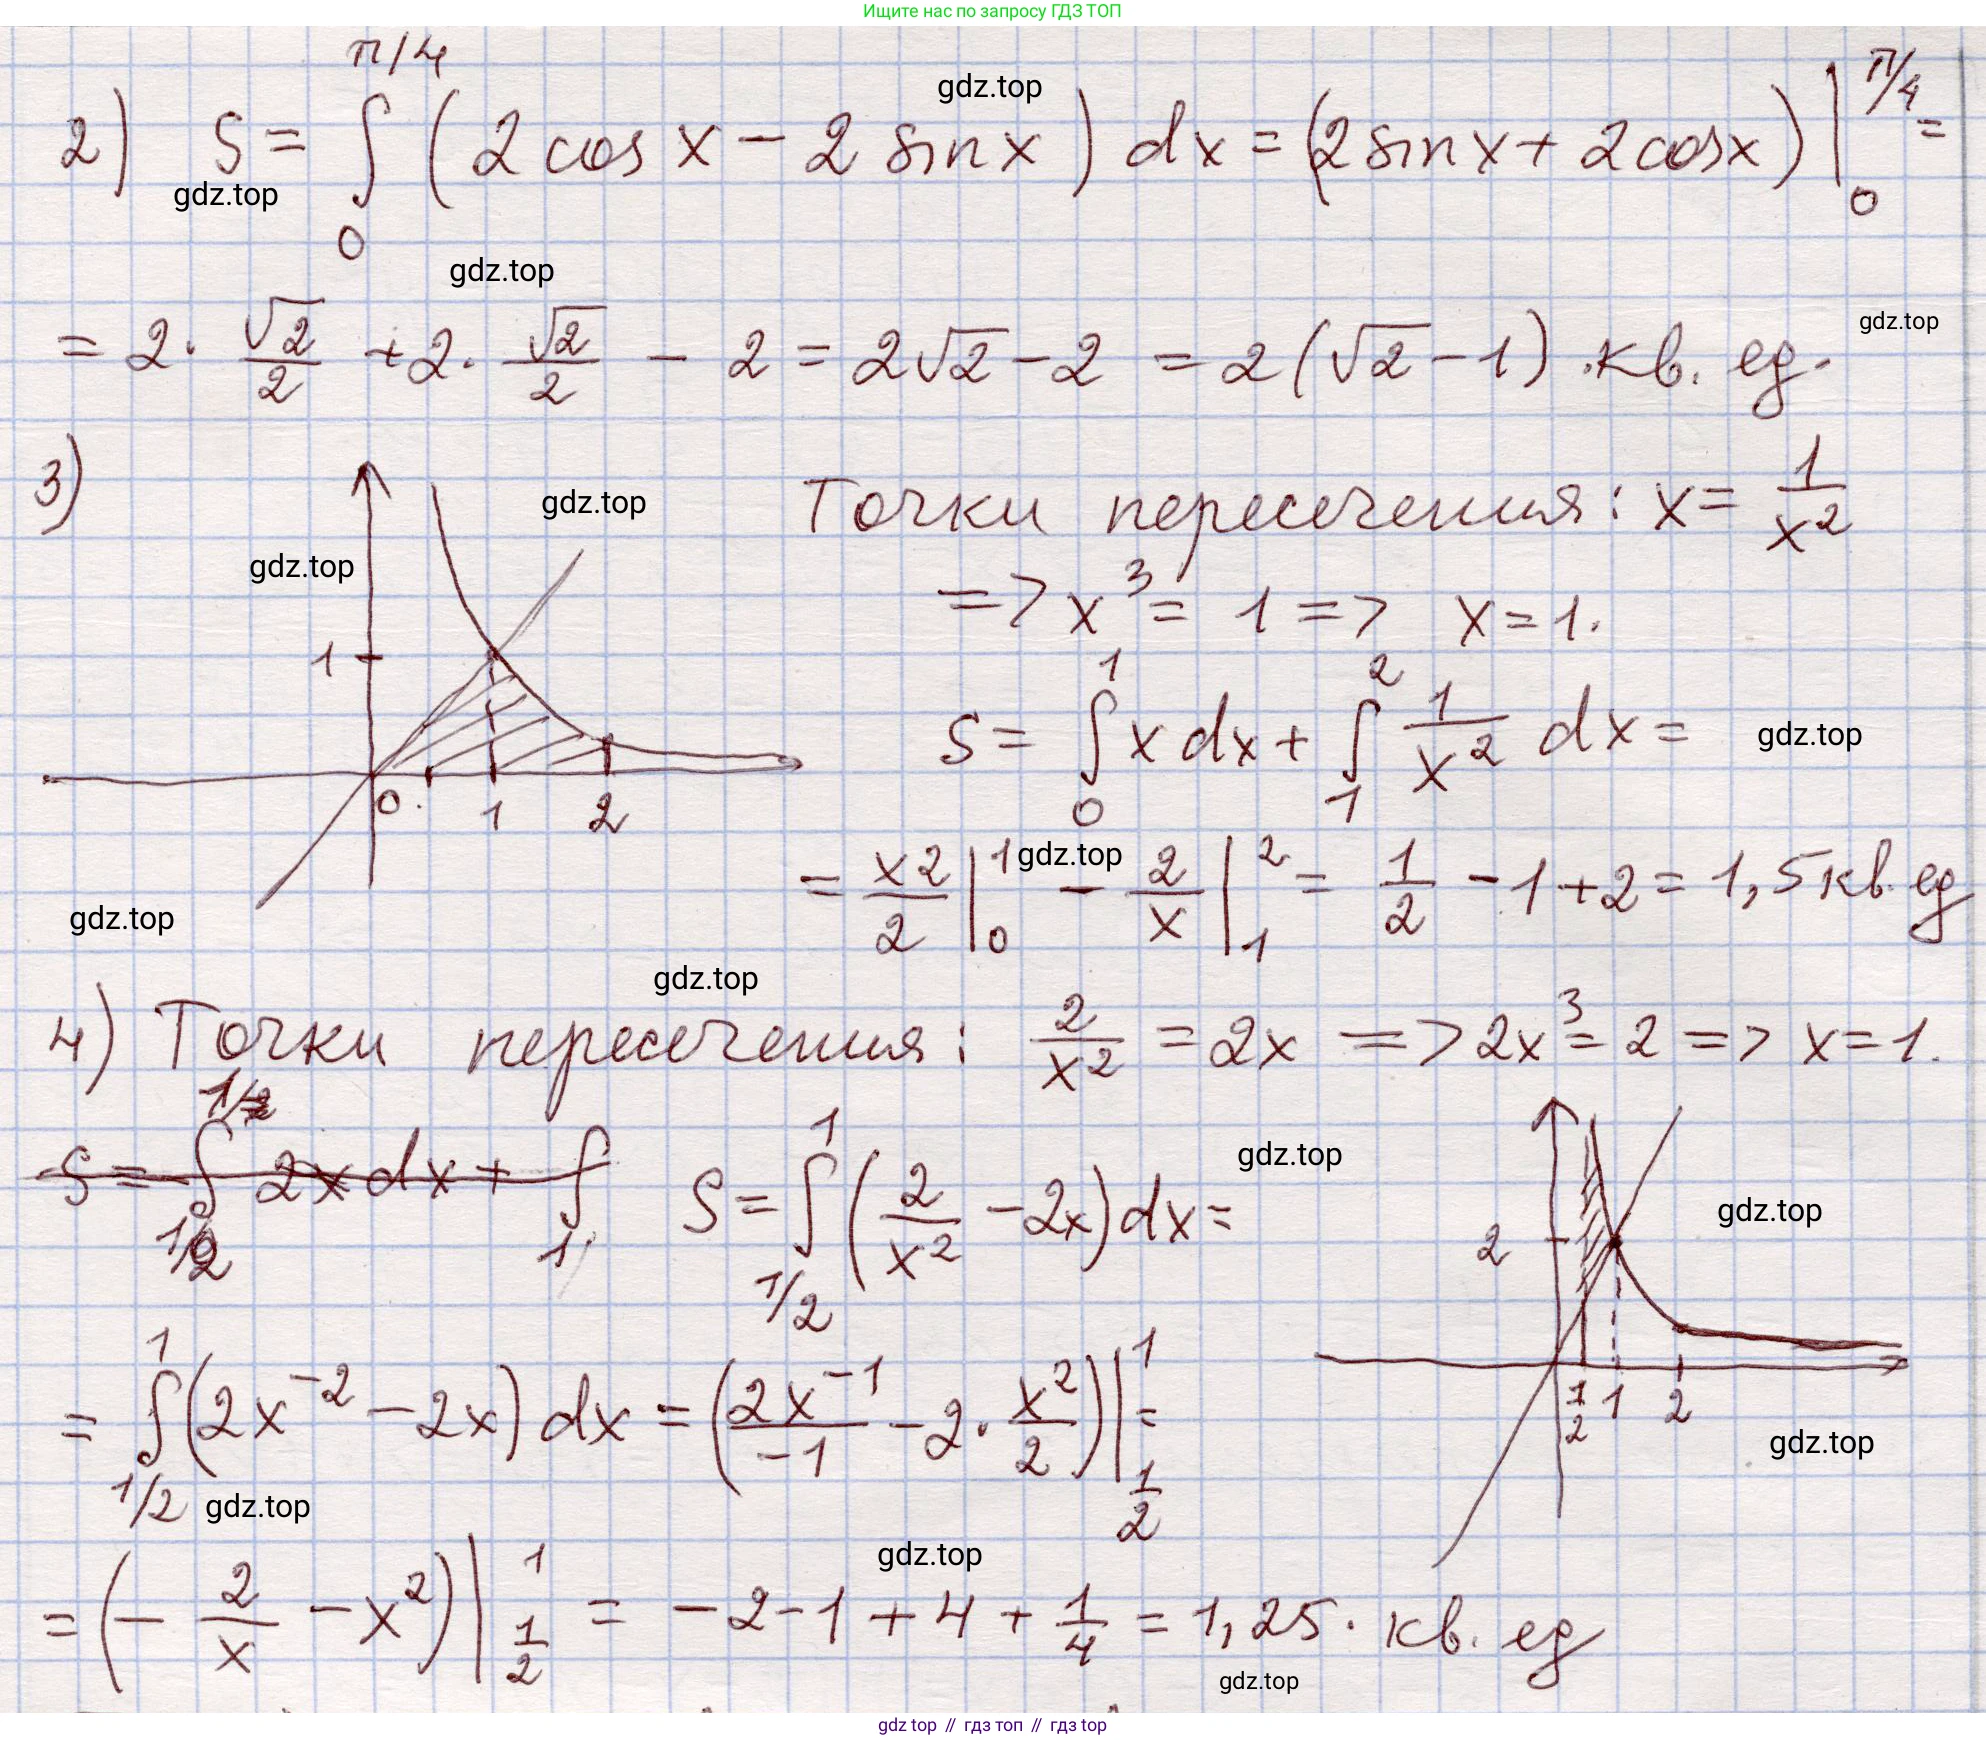 Ищите нас по запросу ГДЗ ТОП
2) S = ∫₀^{π/4} (2 cos x − 2 sin x) dx = (2 sin x + 2 cos x) |₀^{π/4} =
gdz.top
gdz.top
gdz.top
= 2 · √2/2 + 2 · √2/2 − 2 = 2√2 − 2 = 2(√2 − 1) .кв. ед.
gdz.top
3) Точки пересечения: x = 1/x²
gdz.top
gdz.top
=> x³ = 1 => x = 1.
1
0
1
2
S = ∫₀¹ x dx + ∫₁² 1/x² dx =
gdz.top
= x2/2 |₀¹ − 2/x |₁² = 1/2 − 1 + 2 = 1,5 кв. ед
gdz.top
gdz.top
gdz.top
4) Точки пересечения: 2/x² = 2x => 2x³ = 2 => x = 1.
S = ∫ 2x dx + ∫₁ S = ∫_{1/2}^1 (2/x² − 2x) dx =
gdz.top
gdz.top
2
1/2
1
2
= ∫_{1/2}^1 (2x⁻² − 2x) dx = (2x⁻¹/−1 − 2 · x²/2) |_{1/2}^1 =
gdz.top
gdz.top
gdz.top
= (− 2/x − x²) |_{1/2}^1 = −2 − 1 + 4 + 1/4 = 1,25. кв. ед
gdz.top
gdz top // гдз топ // gdz top